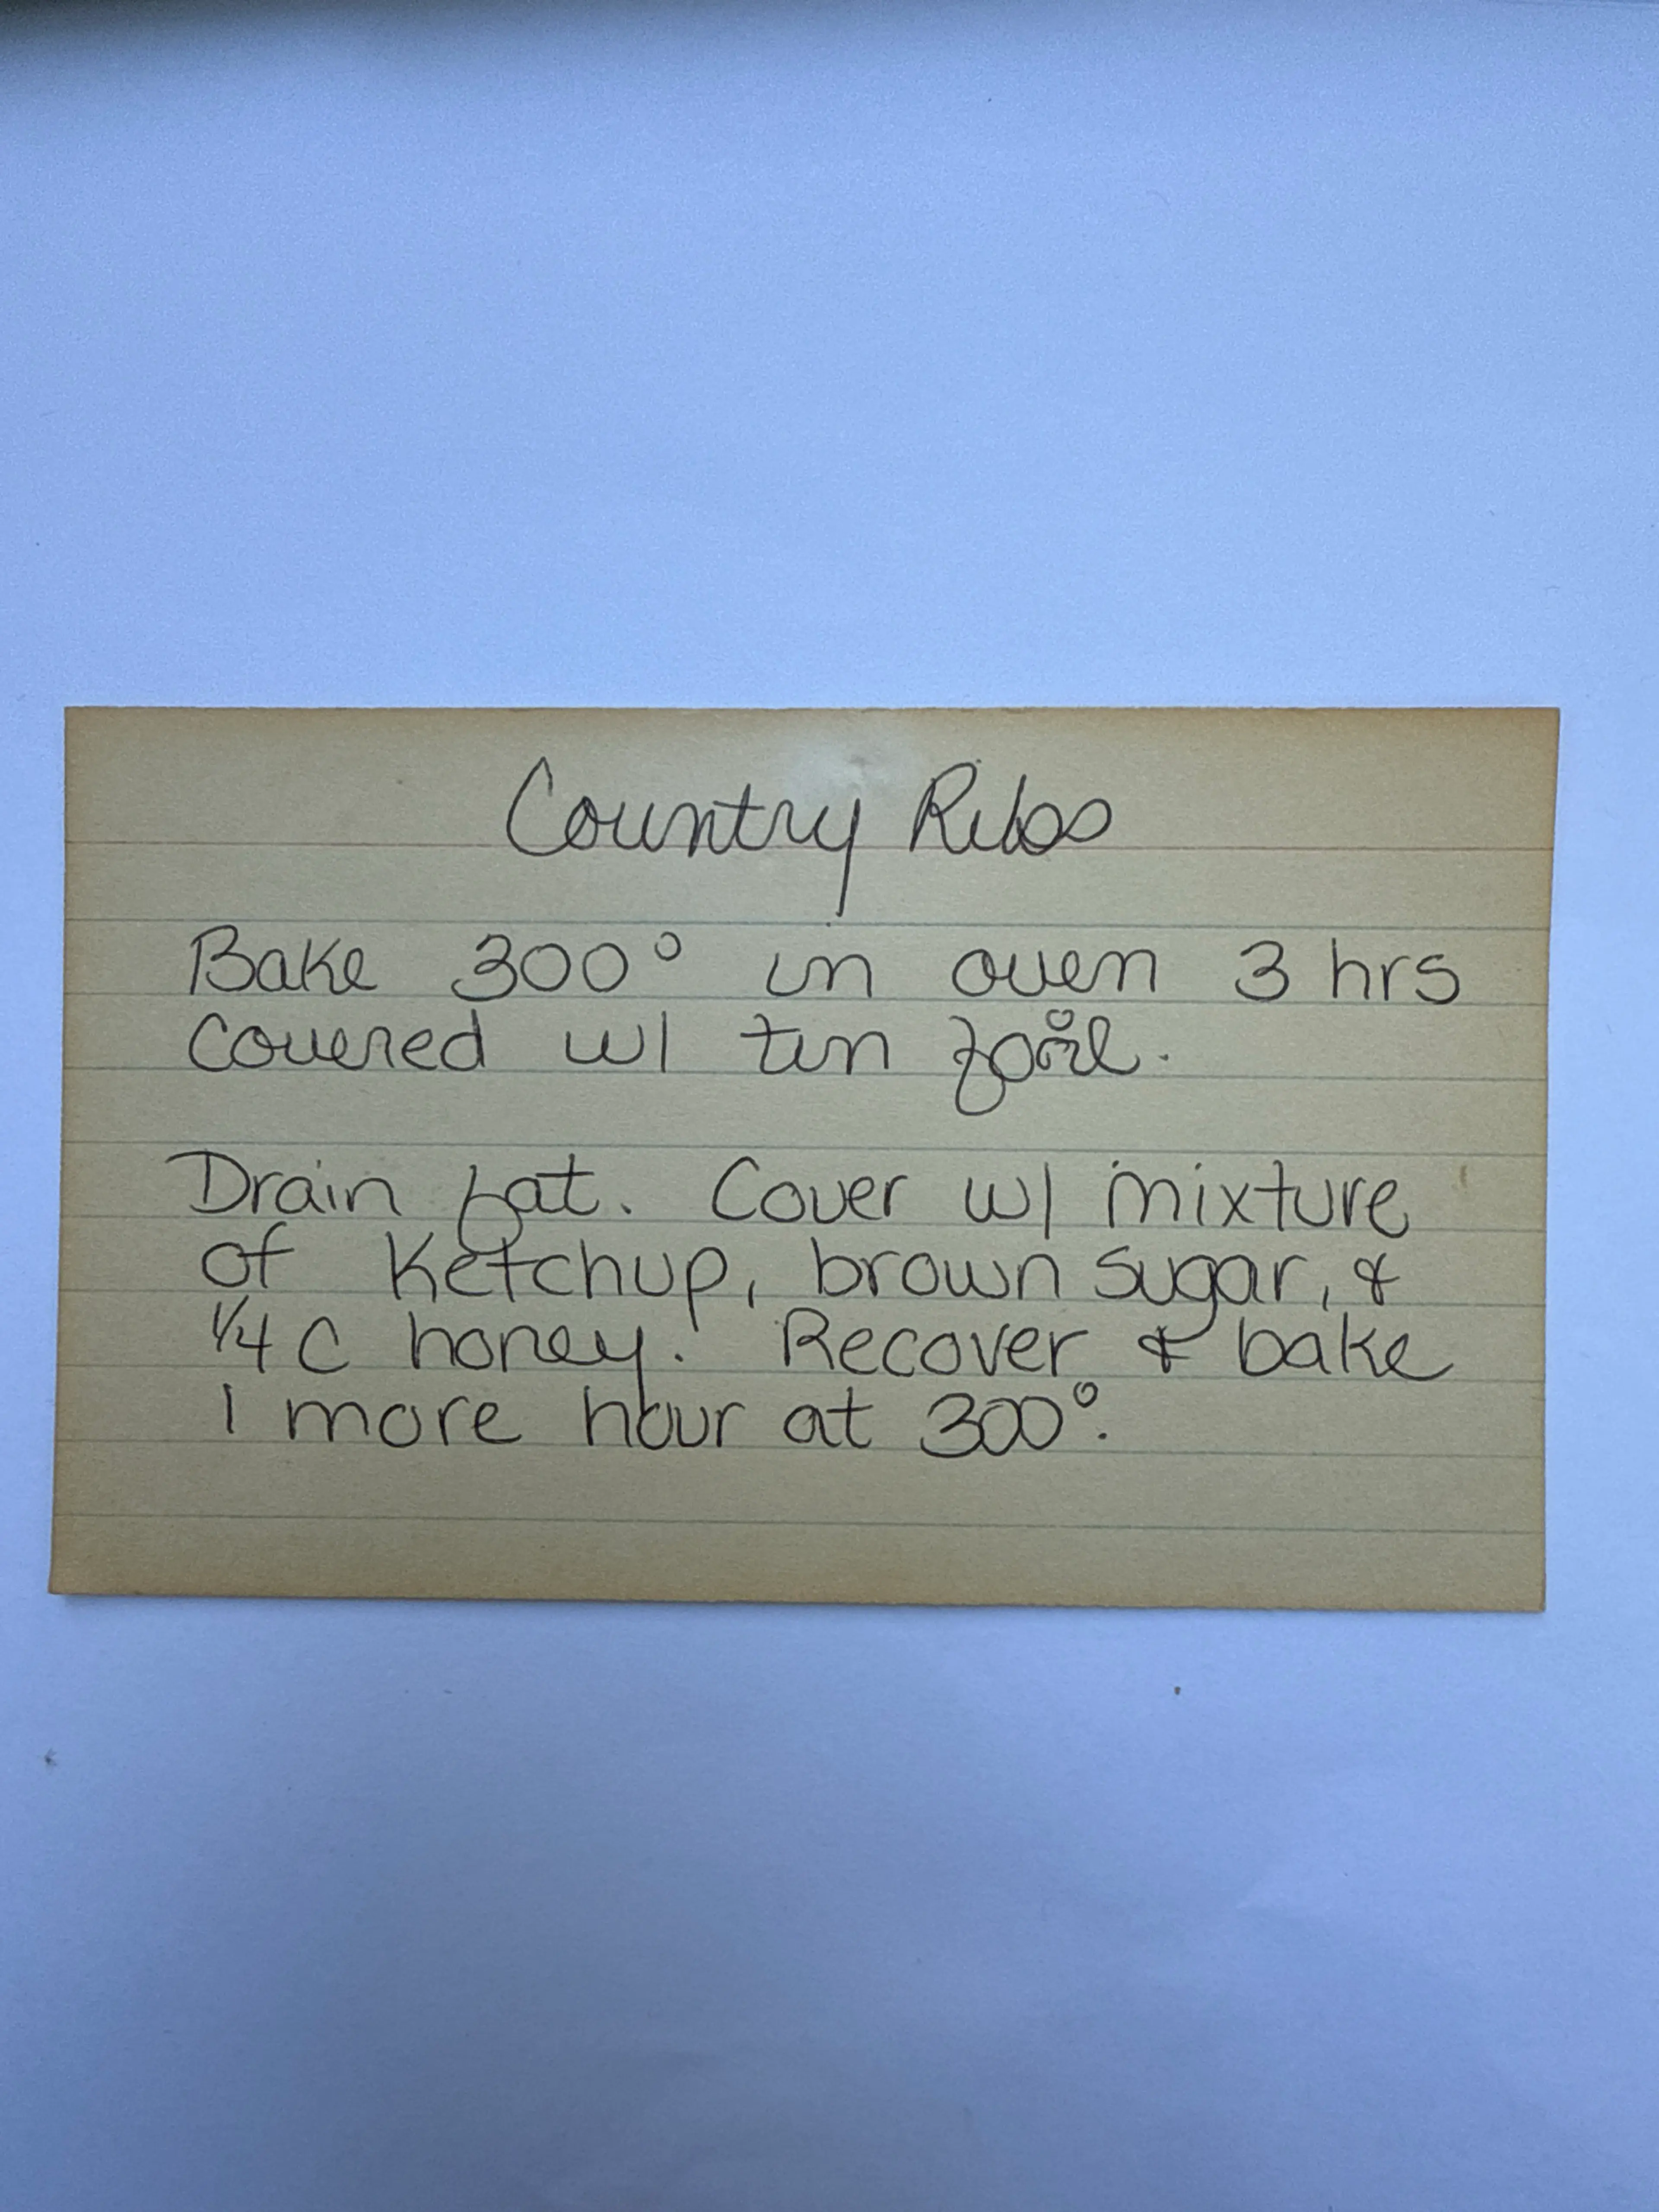 Country Ribs
Bake 300° in oven 3 hrs
covered w/ tin foil.
Drain fat. Cover w/ mixture
of Ketchup, brown sugar, &
1/4 C honey. Recover & bake
1 more hour at 300°.